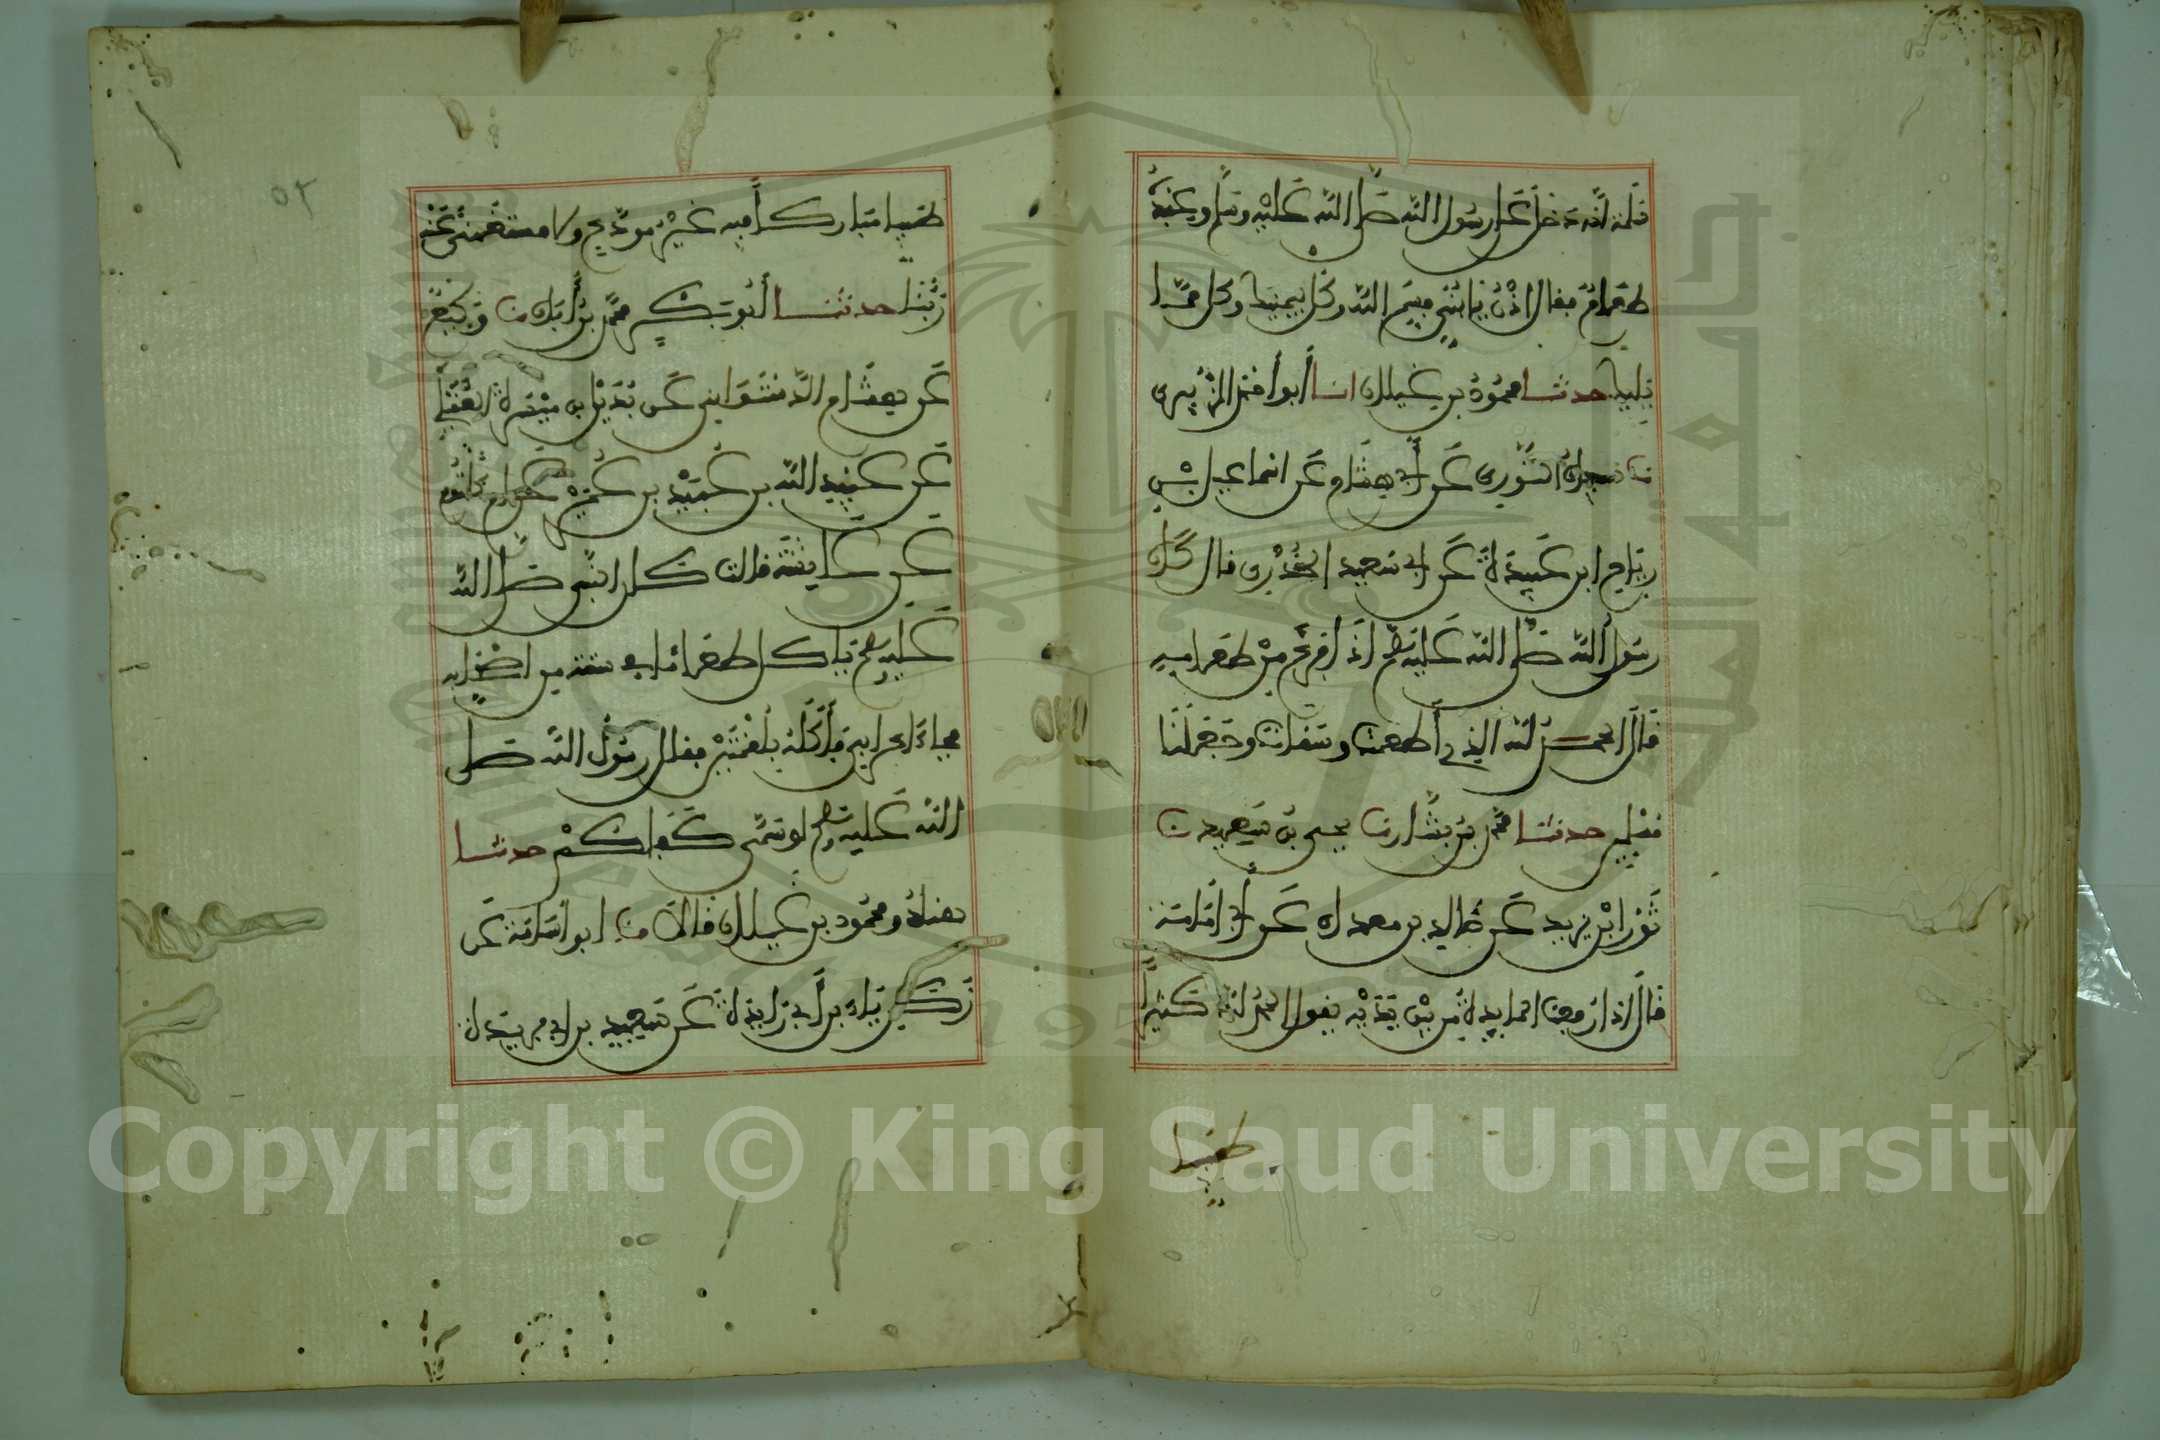 سلمة أنه دخل على رسول الله صلى الله عليه وسلم وعنده
طعام فقال ادن يا بني فسم الله وكل بيمينك وكل مما
يليك حدثنا محمود بن غيلان انا أبو أحمد الزبيري
نا سفيان الثوري عن أبي هشام عن اسماعيل بن
رياح ابن عبيدة عن ابي سعيد الخدري قال كان
رسول الله صلى الله عليه وسلم اذا فرغ من طعامه
قال الحمد لله الذي أطعمنا وسقانا وجعلنا
مسلمين حدثنا محمد بن بشار نا يحيى بن سعيد نا
ثور ابن يزيد عن خالد بن معدان عن أبي أمامة
قال اذا رفعت المايدة من بين يديه يقول الحمد لله كثيرا
طيبا
٥٢
طيبا مباركا فيه غير مودع ولا مستغنى عنه
ربنا حدثنا أبو بكر محمد بن أبان نا وكيع
عن هشام الدستوايي عن بديل بن ميسرة العقيلي
عن عبيد الله بن عبيد بن عمير عن ام كلثوم
عن عايشة قالت كان النبي صلى الله
عليه وسلم ياكل طعاما في ستة من اصحابه
فجاء اعرابي فأكله بلقمتين فقال رسول الله صلى
الله عليه وسلم لو سمى كفاكم حدثنا
هناد ومحمود بن غيلان قالا نا ابو أسامة عن
زكرياء بن أبي زايدة عن سعيد بن ابي بردة
Copyright © King Saud University
جامعة الملك
1957